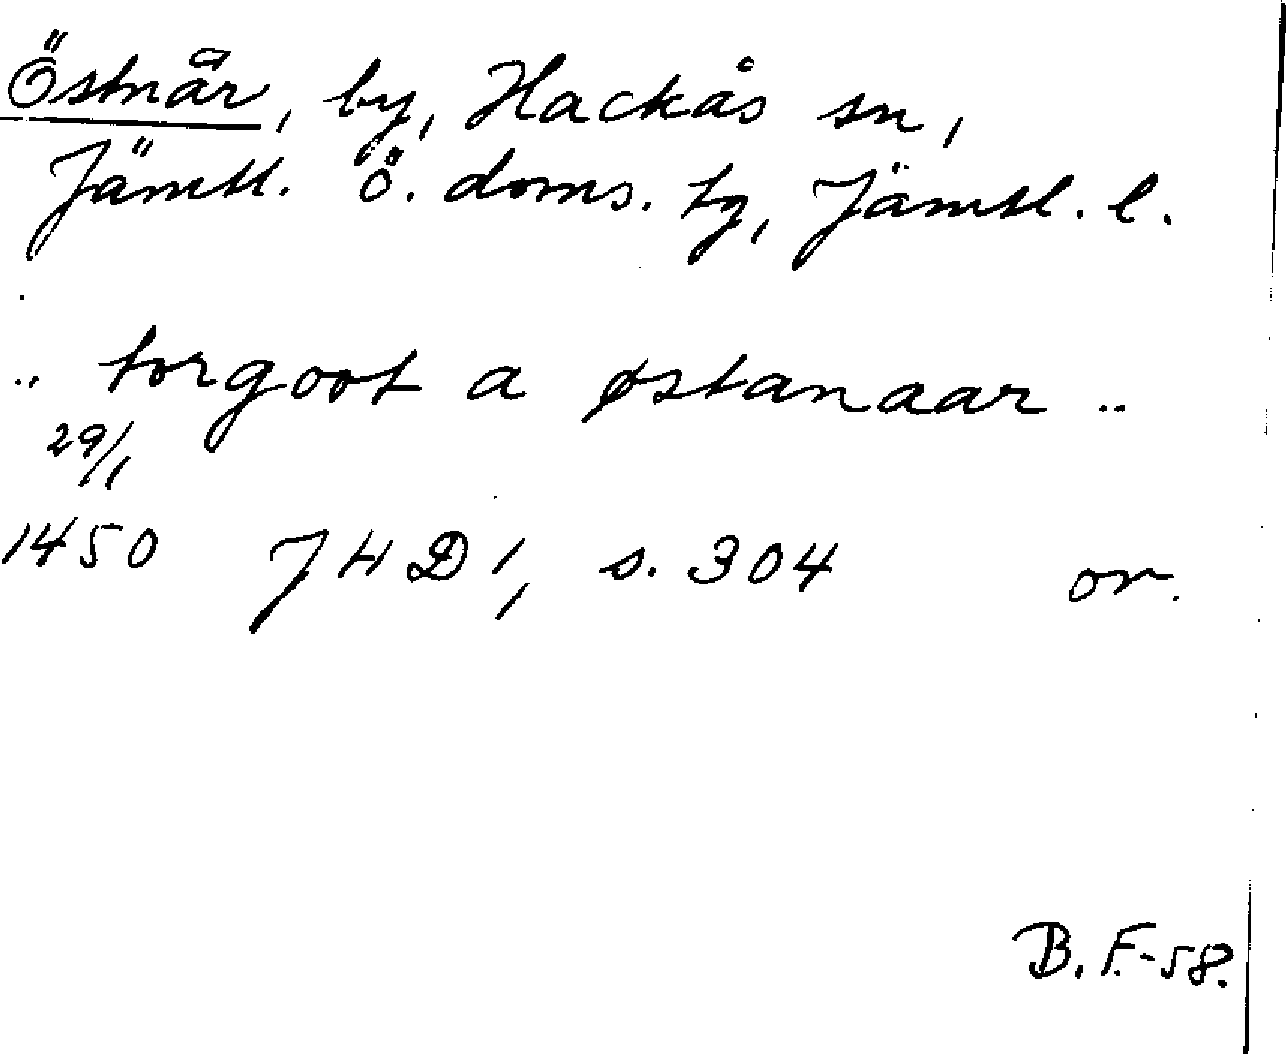 Östnår, by, Hackås sn,
Jämtl. Ö. doms. tg, Jämtl. l.
.. torgoot a østanaar ..
29/1
1450 JHD 1, s. 304 or.
B.F.-58.